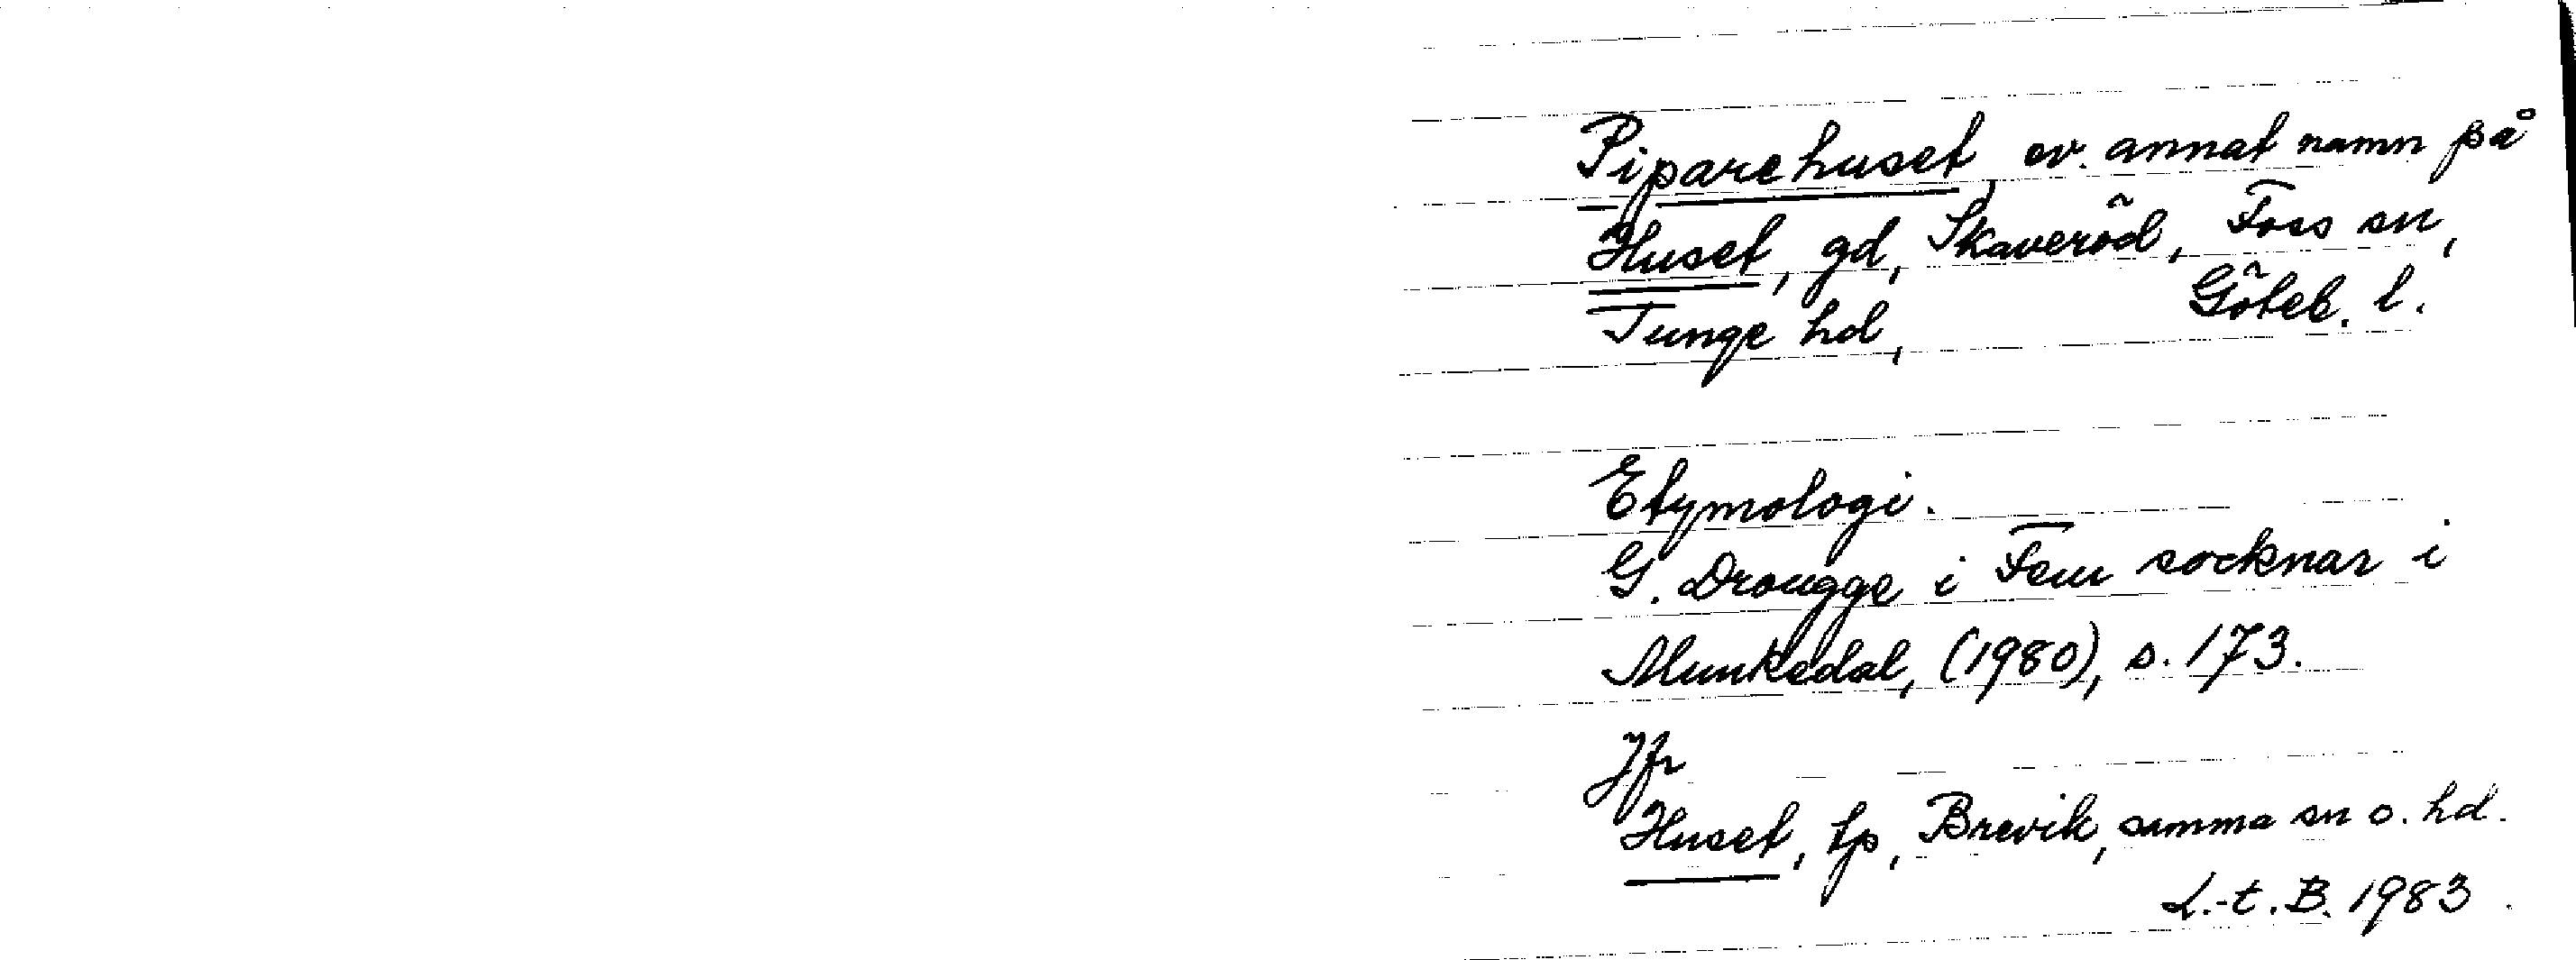 Piparehuset, ev. annat namn på
Huset, gd, Skaveröd, Foss sn,
Tunge hd, Göteb. l.
Etymologi.
G. Drougge i Fem socknar i
Munkedal, (1980), s. 173.
Jfr
Huset, tp, Brevik, samma sn o. hd.
L.-t. B. 1983.